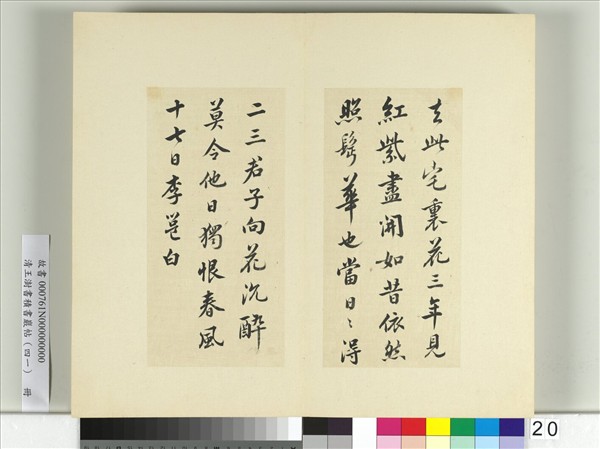 去此宅裏花三年見
紅紫盡開如昔依然
照鬢華也當日〻得
二三君子向花沉醉
莫令他日獨恨春風
十七日李邕白
故書 000761N000000000
清王澍書積書巖帖（四一） 冊
20